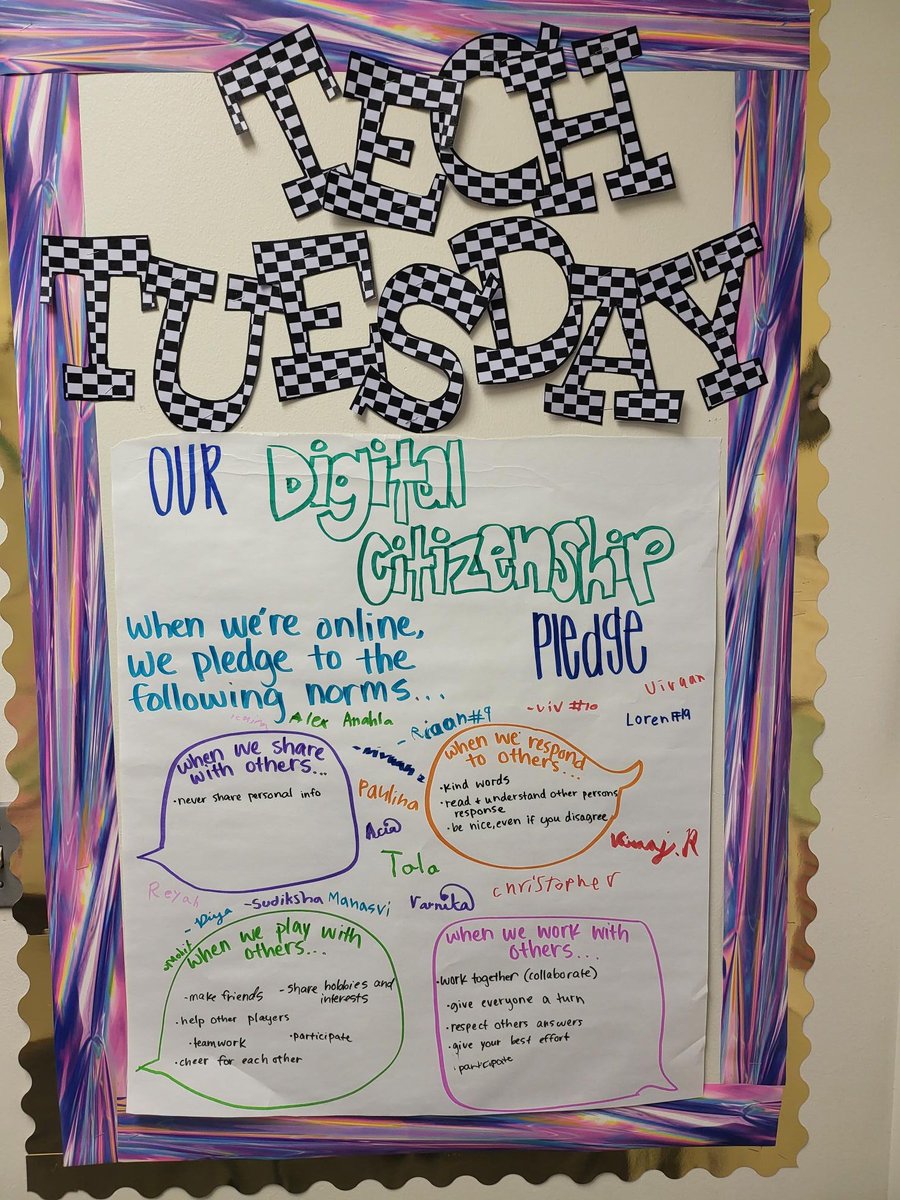 TECH
TUESDAY
OUR Digital
Citizenship
Pledge
When we're online,
we pledge to the
following norms...
Viraan
-viv #10
Loren #19
Alex Anahla
-Riaan#9
Paulina
Acia
Tola
christopher
Reyah
-Diya
-Sudiksha
Manasvi
Varnika
-Mohit
When we share
with others...
·never share personal info
When we respond
to others...
·Kind words
·read + understand other persons
response
·be nice, even if you disagree
When we play with
others...
-make friends
-share hobbies and
interests
·help other players
·teamwork
·participate
·cheer for each other
When we work with
others...
·work together (collaborate)
·give everyone a turn
·respect others answers
·give your best effort
·participate